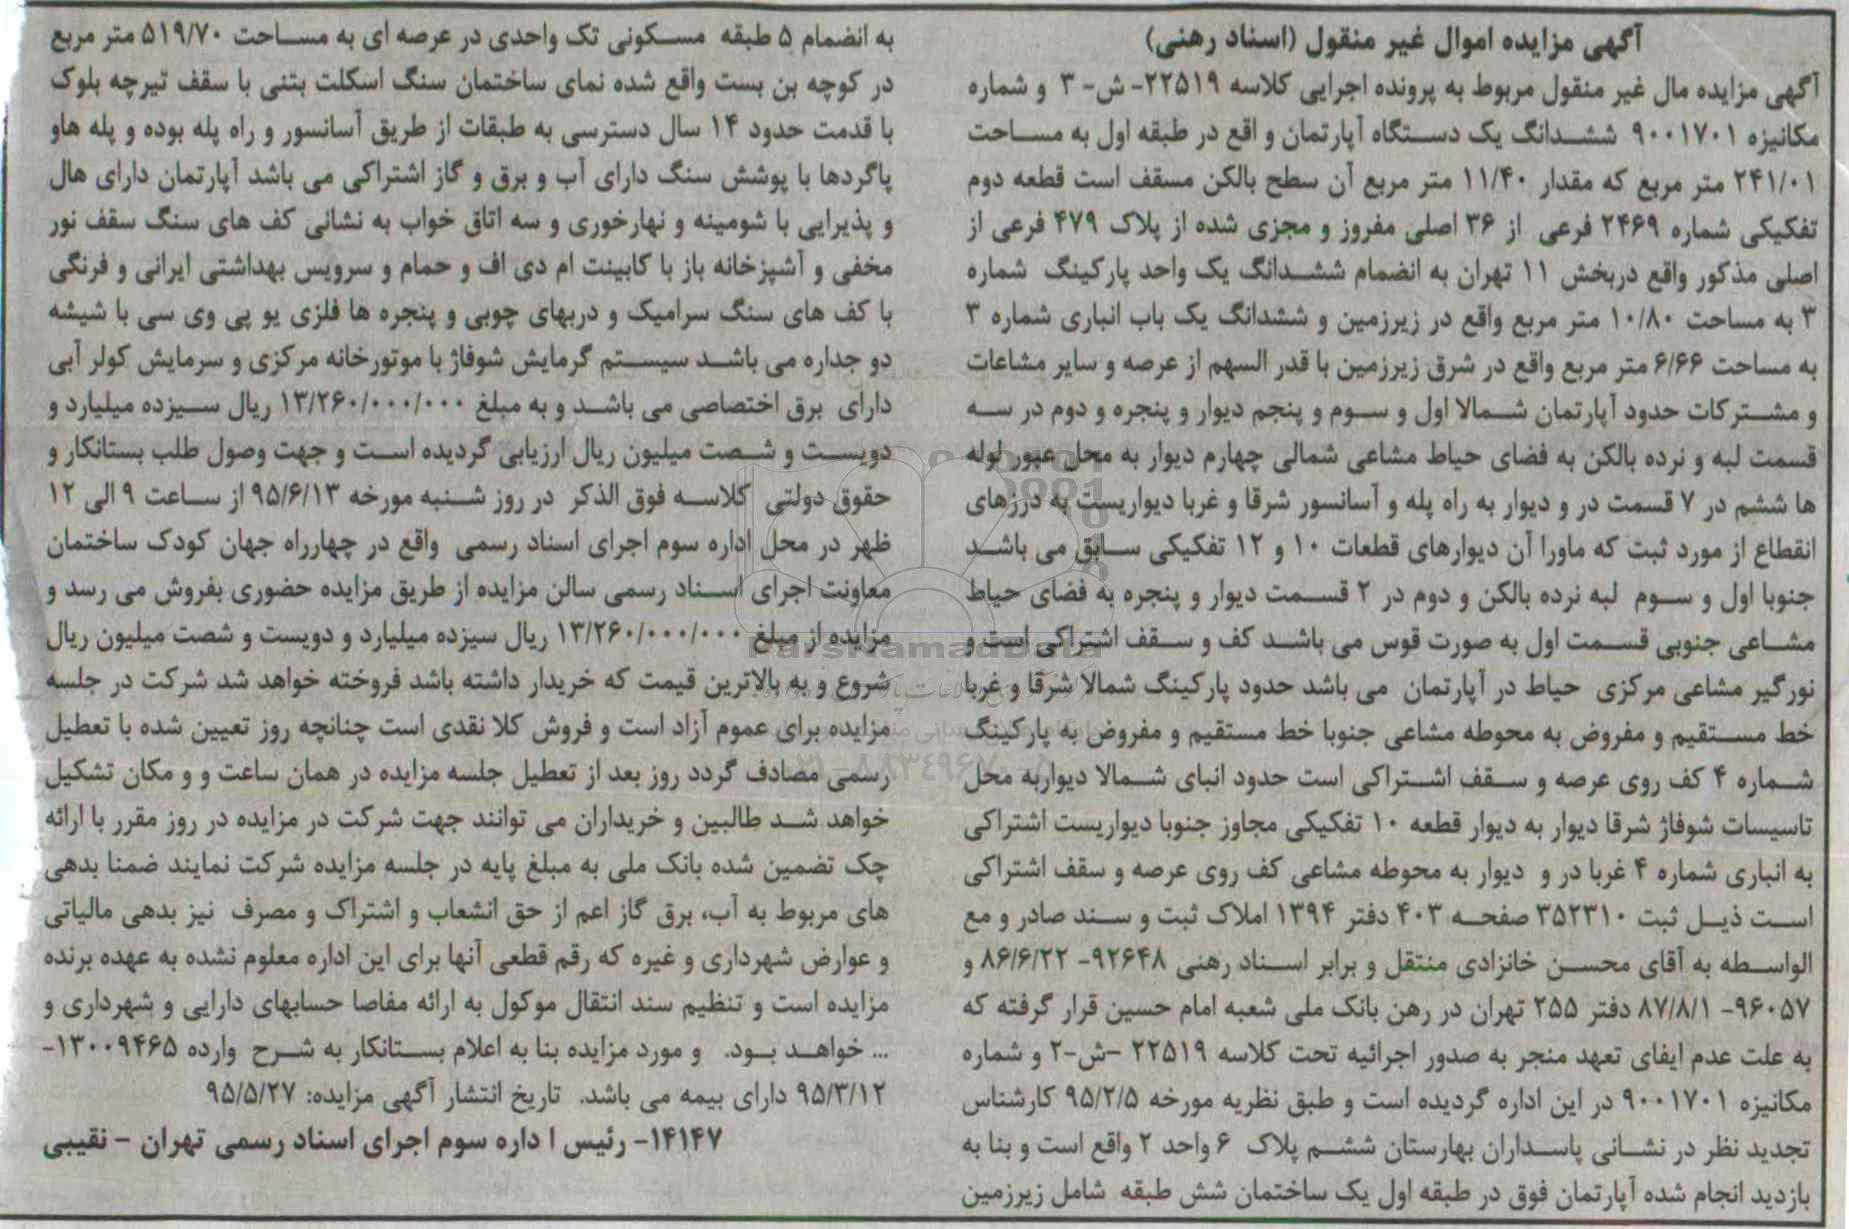 آگهی مزایده اموال غیر منقول (اسناد رهنی)
آگهی مزایده مال غیر منقول مربوط به پرونده اجرایی کلاسه ۲۲۵۱۹- ش- ۳ و شماره
مکانیزه ۹۰۰۱۷۰۱ ششدانگ یک دستگاه آپارتمان و اقع در طبقه اول به مساحت
۲۴۱/۰۱ متر مربع که مقدار ۱۱/۴۰ متر مربع آن سطح بالکن مسقف است قطعه دوم
تفکیکی شماره ۲۴۶۹ فرعی از ۳۶ اصلی مفروز و مجزی شده از پلاک ۴۷۹ فرعی از
اصلی مذکور واقع دربخش ۱۱ تهران به انضمام ششدانگ یک واحد پارکینگ شماره
۳ به مساحت ۱۰/۸۰ متر مربع واقع در زیرزمین و ششدانگ یک باب انباری شماره ۳
به مساحت ۶/۶۶ متر مربع واقع در شرق زیرزمین با قدر السهم از عرصه و سایر مشاعات
و مشترکات حدود آپارتمان شمالا اول و سوم و پنجم دیوار و پنجره و دوم در سه
قسمت لبه و نرده بالکن به فضای حیاط مشاعی شمالی چهارم دیوار به محل عبور لوله
ها ششم در ۷ قسمت در و دیوار به راه پله و آسانسور شرقا و غربا دیواریست به درزهای
انقطاع از مورد ثبت که ماورا آن دیوارهای قطعات ۱۰ و ۱۲ تفکیکی سابق می باشد
جنوبا اول و سوم لبه نرده بالکن و دوم در ۲ قسمت دیوار و پنجره به فضای حیاط
مشاعی جنوبی قسمت اول به صورت قوس می باشد کف و سقف اشتراکی است و
نورگیر مشاعی مرکزی حیاط در آپارتمان می باشد حدود پارکینگ شمالا شرقا و غربا
خط مستقیم و مفروض به محوطه مشاعی جنوبا خط مستقیم و مفروض به پارکینگ
شماره ۴ کف روی عرصه و سقف اشتراکی است حدود انبای شمالا دیواربه محل
تاسیسات شوفاژ شرقا دیوار به دیوار قطعه ۱۰ تفکیکی مجاوز جنوبا دیواریست اشتراکی
به انباری شماره ۴ غربا در و دیوار به محوطه مشاعی کف روی عرصه و سقف اشتراکی
است ذیل ثبت ۳۵۲۳۱۰ صفحه ۴۰۳ دفتر ۱۳۹۴ املاک ثبت و سند صادر و مع
الواسطه به آقای محسن خانزادی منتقل و برابر اسناد رهنی ۹۲۶۴۸- ۸۶/۶/۲۲ و
۹۶۰۵۷- ۸۷/۸/۱ دفتر ۲۵۵ تهران در رهن بانک ملی شعبه امام حسین قرار گرفته که
به علت عدم ایفای تعهد منجر به صدور اجرائیه تحت کلاسه ۲۲۵۱۹ -ش-۲ و شماره
مکانیزه ۹۰۰۱۷۰۱ در این اداره گردیده است و طبق نظریه مورخه ۹۵/۲/۵ کارشناس
تجدید نظر در نشانی پاسداران بهارستان ششم پلاک ۶ واحد ۲ واقع است و بنا به
بازدید انجام شده آپارتمان فوق در طبقه اول یک ساختمان شش طبقه شامل زیرزمین
به انضمام ۵ طبقه مسکونی تک واحدی در عرصه ای به مساحت ۵۱۹/۷۰ متر مربع
در کوچه بن بست واقع شده نمای ساختمان سنگ اسکلت بتنی با سقف تیرچه بلوک
با قدمت حدود ۱۴ سال دسترسی به طبقات از طریق آسانسور و راه پله بوده و پله هاو
پاگردها با پوشش سنگ دارای آب و برق و گاز اشتراکی می باشد آپارتمان دارای هال
و پذیرایی با شومینه و نهارخوری و سه اتاق خواب به نشانی کف های سنگ سقف نور
مخفی و آشپزخانه باز با کابینت ام دی اف و حمام و سرویس بهداشتی ایرانی و فرنگی
با کف های سنگ سرامیک و دربهای چوبی و پنجره ها فلزی یو پی وی سی با شیشه
دو جداره می باشد سیستم گرمایش شوفاژ با موتورخانه مرکزی و سرمایش کولر آبی
دارای برق اختصاصی می باشد و به مبلغ ۱۳/۲۶۰/۰۰۰/۰۰۰ ریال سیزده میلیارد و
دویست و شصت میلیون ریال ارزیابی گردیده است و جهت وصول طلب بستانکار و
حقوق دولتی کلاسه فوق الذکر در روز شنبه مورخه ۹۵/۶/۱۳ از ساعت ۹ الی ۱۲
ظهر در محل اداره سوم اجرای اسناد رسمی واقع در چهارراه جهان کودک ساختمان
معاونت اجرای اسناد رسمی سالن مزایده از طریق مزایده حضوری بفروش می رسد و
مزایده از مبلغ ۱۳/۲۶۰/۰۰۰/۰۰۰ ریال سیزده میلیارد و دویست و شصت میلیون ریال
شروع و به بالاترین قیمت که خریدار داشته باشد فروخته خواهد شد شرکت در جلسه
مزایده برای عموم آزاد است و فروش کلا نقدی است چنانچه روز تعیین شده با تعطیل
رسمی مصادف گردد روز بعد از تعطیل جلسه مزایده در همان ساعت و و مکان تشکیل
خواهد شد طالبین و خریداران می توانند جهت شرکت در مزایده در روز مقرر با ارائه
چک تضمین شده بانک ملی به مبلغ پایه در جلسه مزایده شرکت نمایند ضمنا بدهی
های مربوط به آب، برق گاز اعم از حق انشعاب و اشتراک و مصرف نیز بدهی مالیاتی
و عوارض شهرداری و غیره که رقم قطعی آنها برای این اداره معلوم نشده به عهده برنده
مزایده است و تنظیم سند انتقال موکول به ارائه مفاصا حسابهای دارایی و شهرداری و
... خواهد بود. و مورد مزایده بنا به اعلام بستانکار به شرح وارده ۱۳۰۰۹۴۶۵-
۹۵/۳/۱۲ دارای بیمه می باشد. تاریخ انتشار آگهی مزایده: ۹۵/۵/۲۷
۱۴۱۴۷- رئیس ا داره سوم اجرای اسناد رسمی تهران - نقیبی
ParsNamadData
۰۲۱-۸۸۳۴۹۶۷۰-۵